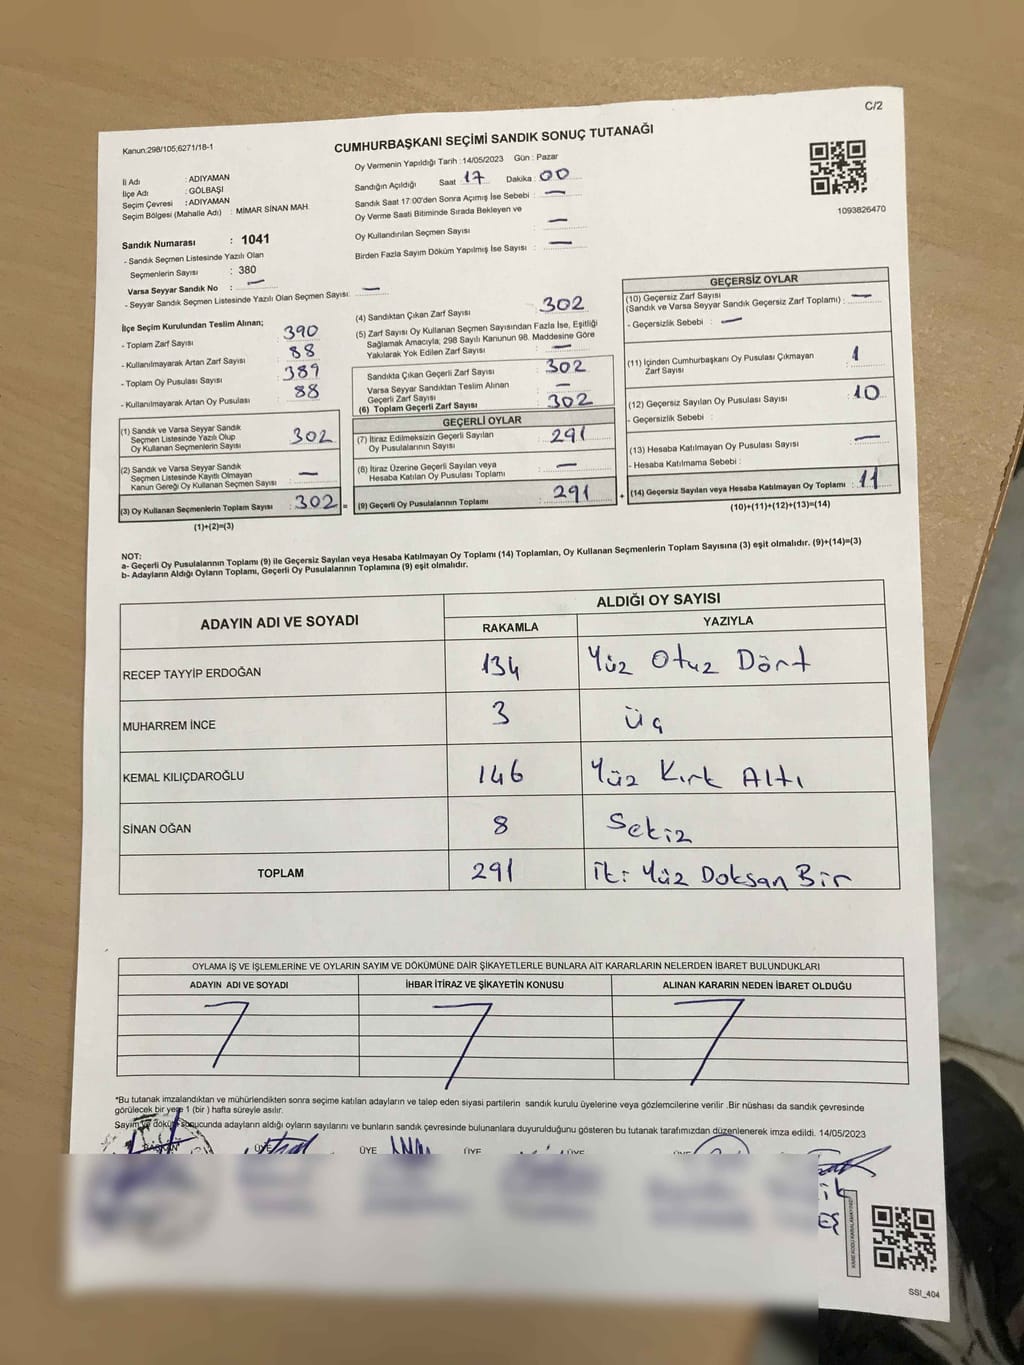 C/2
Kanun:298/105,6271/18-1
CUMHURBAŞKANI SEÇİMİ SANDIK SONUÇ TUTANAĞI
Oy Vermenin Yapıldığı Tarih :14/05/2023 Gün : Pazar
İl Adı : ADIYAMAN
İlçe Adı : GÖLBAŞI
Seçim Çevresi : ADIYAMAN
Seçim Bölgesi (Mahalle Adı) : MİMAR SİNAN MAH.
Sandığın Açıldığı Saat 17 Dakika 00
Sandık Saat 17:00'den Sonra Açımış İse Sebebi : —
Oy Verme Saati Bitiminde Sırada Bekleyen ve
Oy Kullandırılan Seçmen Sayısı : —
Birden Fazla Sayım Döküm Yapılmış İse Sayısı : —
1093826470
Sandık Numarası : 1041
- Sandık Seçmen Listesinde Yazılı Olan
Seçmenlerin Sayısı : 380
Varsa Seyyar Sandık No : —
- Seyyar Sandık Seçmen Listesinde Yazılı Olan Seçmen Sayısı: —
İlçe Seçim Kurulundan Teslim Alınan;
- Toplam Zarf Sayısı : 390
- Kullanılmayarak Artan Zarf Sayısı : 88
- Toplam Oy Pusulası Sayısı : 389
- Kullanılmayarak Artan Oy Pusulası : 88
(1) Sandık ve Varsa Seyyar Sandık
Seçmen Listesinde Yazılı Olup
Oy Kullanan Seçmenlerin Sayısı : 302
(2) Sandık ve Varsa Seyyar Sandık
Seçmen Listesinde Kayıtlı Olmayan
Kanun Gereği Oy Kullanan Seçmen Sayısı : —
(3) Oy Kullanan Seçmenlerin Toplam Sayısı : 302 =
(1)+(2)=(3)
(4) Sandıktan Çıkan Zarf Sayısı : 302
(5) Zarf Sayısı Oy Kullanan Seçmen Sayısından Fazla İse, Eşitliği
Sağlamak Amacıyla; 298 Sayılı Kanunun 98. Maddesine Göre
Yakılarak Yok Edilen Zarf Sayısı : —
Sandıkta Çıkan Geçerli Zarf Sayısı : 302
Varsa Seyyar Sandıktan Teslim Alınan
Geçerli Zarf Sayısı : —
(6) Toplam Geçerli Zarf Sayısı : 302
GEÇERLİ OYLAR
(7) İtiraz Edilmeksizin Geçerli Sayılan
Oy Pusulalarının Sayısı : 291
(8) İtiraz Üzerine Geçerli Sayılan veya
Hesaba Katılan Oy Pusulası Toplamı : —
(9) Geçerli Oy Pusulalarının Toplamı : 291 +
GEÇERSİZ OYLAR
(10) Geçersiz Zarf Sayısı
(Sandık ve Varsa Seyyar Sandık Geçersiz Zarf Toplamı) : —
- Geçersizlik Sebebi : —
(11) İçinden Cumhurbaşkanı Oy Pusulası Çıkmayan
Zarf Sayısı : 1
(12) Geçersiz Sayılan Oy Pusulası Sayısı : 10
- Geçersizlik Sebebi :
(13) Hesaba Katılmayan Oy Pusulası Sayısı : —
- Hesaba Katılmama Sebebi :
(14) Geçersiz Sayılan veya Hesaba Katılmayan Oy Toplamı : 11
(10)+(11)+(12)+(13)=(14)
NOT:
a- Geçerli Oy Pusulalarının Toplamı (9) ile Geçersiz Sayılan veya Hesaba Katılmayan Oy Toplamı (14) Toplamları, Oy Kullanan Seçmenlerin Toplam Sayısına (3) eşit olmalıdır. (9)+(14)=(3)
b- Adayların Aldığı Oyların Toplamı, Geçerli Oy Pusulalarının Toplamına (9) eşit olmalıdır.
ADAYIN ADI VE SOYADI
ALDIĞI OY SAYISI
RAKAMLA YAZIYLA
RECEP TAYYİP ERDOĞAN 134 Yüz Otuz Dört
MUHARREM İNCE 3 Üç
KEMAL KILIÇDAROĞLU 146 Yüz Kırk Altı
SİNAN OĞAN 8 Sekiz
TOPLAM 291 İki Yüz Doksan Bir
OYLAMA İŞ VE İŞLEMLERİNE VE OYLARIN SAYIM VE DÖKÜMÜNE DAİR ŞİKAYETLERLE BUNLARA AİT KARARLARIN NELERDEN İBARET BULUNDUKLARI
ADAYIN ADI VE SOYADI İHBAR İTİRAZ VE ŞİKAYETİN KONUSU ALINAN KARARIN NEDEN İBARET OLDUĞU
*Bu tutanak imzalandıktan ve mühürlendikten sonra seçime katılan adayların ve talep eden siyasi partilerin sandık kurulu üyelerine veya gözlemcilerine verilir .Bir nüshası da sandık çevresinde
görülecek bir yere 1 (bir ) hafta süreyle asılır.
Sayım ve döküm sonucunda adayların aldığı oyların sayılarını ve bunların sandık çevresinde bulunanlara duyurulduğunu gösteren bu tutanak tarafımızdan düzenlenerek imza edildi. 14/05/2023
BAŞKAN ÜYE ÜYE ÜYE ÜYE ÜYE
SSI_404